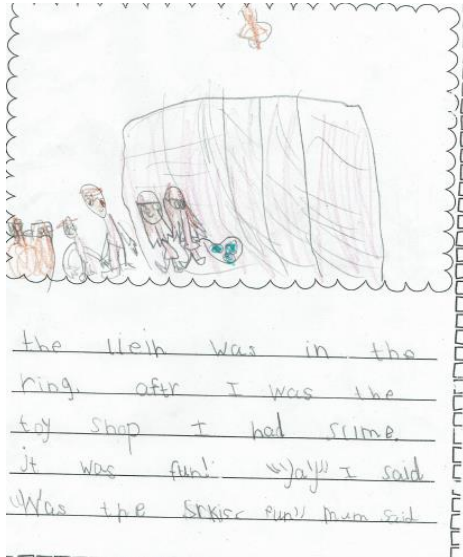 the lieih was in the
ring. aftr I was the
toy shop I had slime.
it was fun! "yay" I said
"Was the srkisc fun" mum said